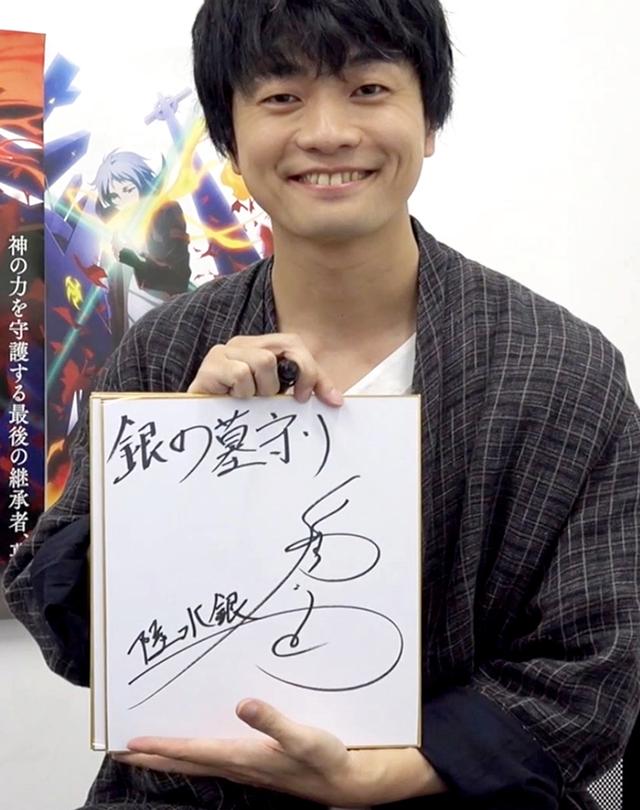 神の力を守護する最後の継承者、
銀の墓守り
陸水銀